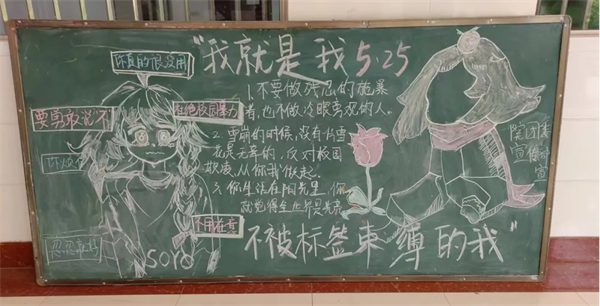 "我就是我 5.25
你真的很没用
要勇敢说不
拒绝校园暴力
1.不要做残忍的施暴
者,也不做冷眼旁观的人。
2.雪崩的时候,没有一片雪
花是无辜的,反对校园
欺凌,从你我做起。
3.你生活在阳光里,你
就觉得全世界
不用在意
solo
不被标签束缚的我"